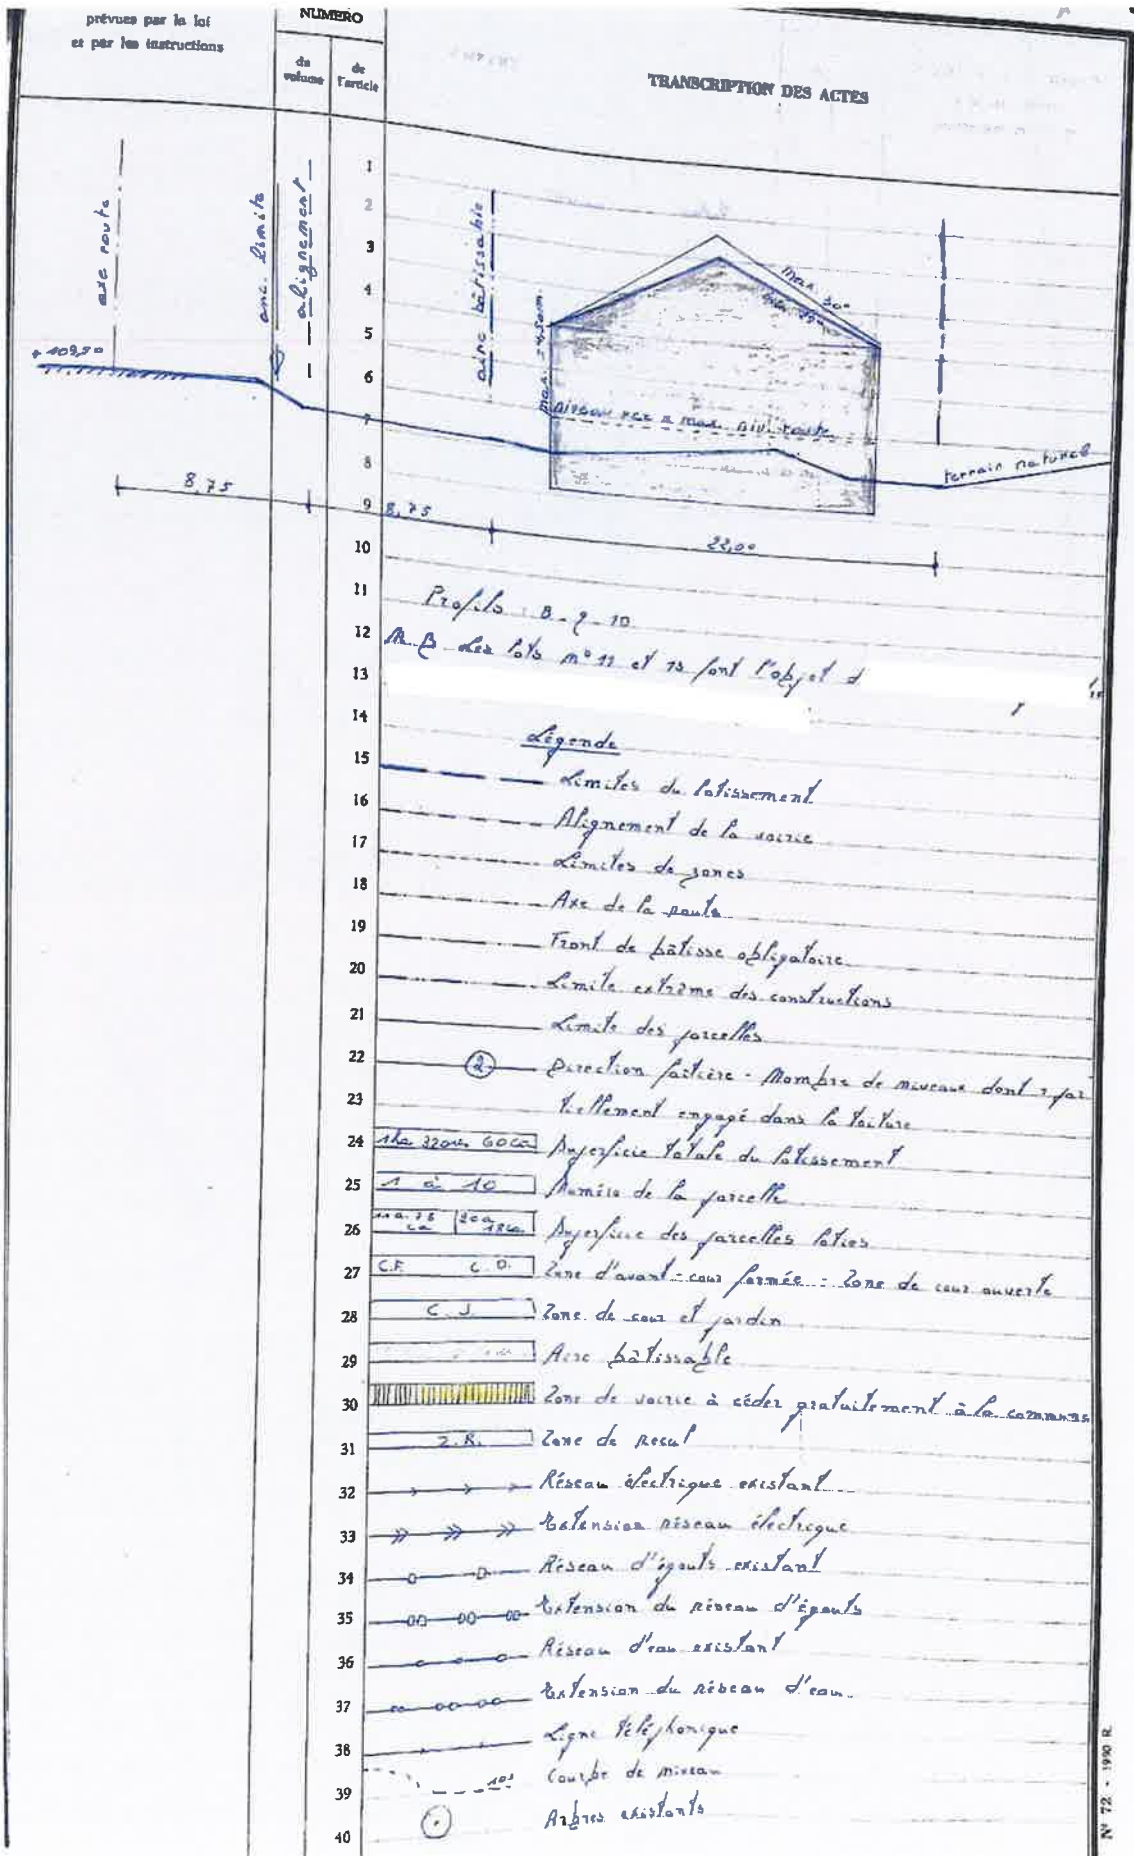 prévues par la loi
et par les instructions
NUMERO
du
volume
de
l'article
TRANSCRIPTION DES ACTES
axe route
anc. limite
alignement
aire bâtissable
max. 30°
max. 4.50m.
niveau rez = max. niv. route
terrain naturel
+ 109,50
8,75
8,75
22,00
1
2
3
4
5
6
7
8
9
10
11
Profils : 8 - 9 - 10
12
N.B. Les lots n° 11 et 13 font l'objet d
13
14
Légende
15
Limites du lotissement
16
Alignement de la voirie
17
Limites de zones
18
Axe de la route
19
Front de bâtisse obligatoire
20
Limite extrême des constructions
21
Limite des parcelles
22
2 Direction faîtière - Nombre de niveaux dont 1 par
23
tiellement engagé dans la toiture
24
1ha 32ares 60ca Superficie totale du lotissement
25
1 à 10 Numéro de la parcelle
26
Superficie des parcelles loties
27
C.F. C.O. Zone d'avant-cour fermée - Zone de cour ouverte
28
C.J. Zone de cour et jardin
29
Aire bâtissable
30
Zone de voirie à céder gratuitement à la commune
31
Z.R. Zone de recul
32
Réseau électrique existant
33
Extension réseau électrique
34
Réseau d'égouts existant
35
Extension du réseau d'égouts
36
Réseau d'eau existant
37
Extension du réseau d'eau.
38
Ligne téléphonique
39
Courbe de niveau
40
Arbres existants
N° 72 - 1990 R.